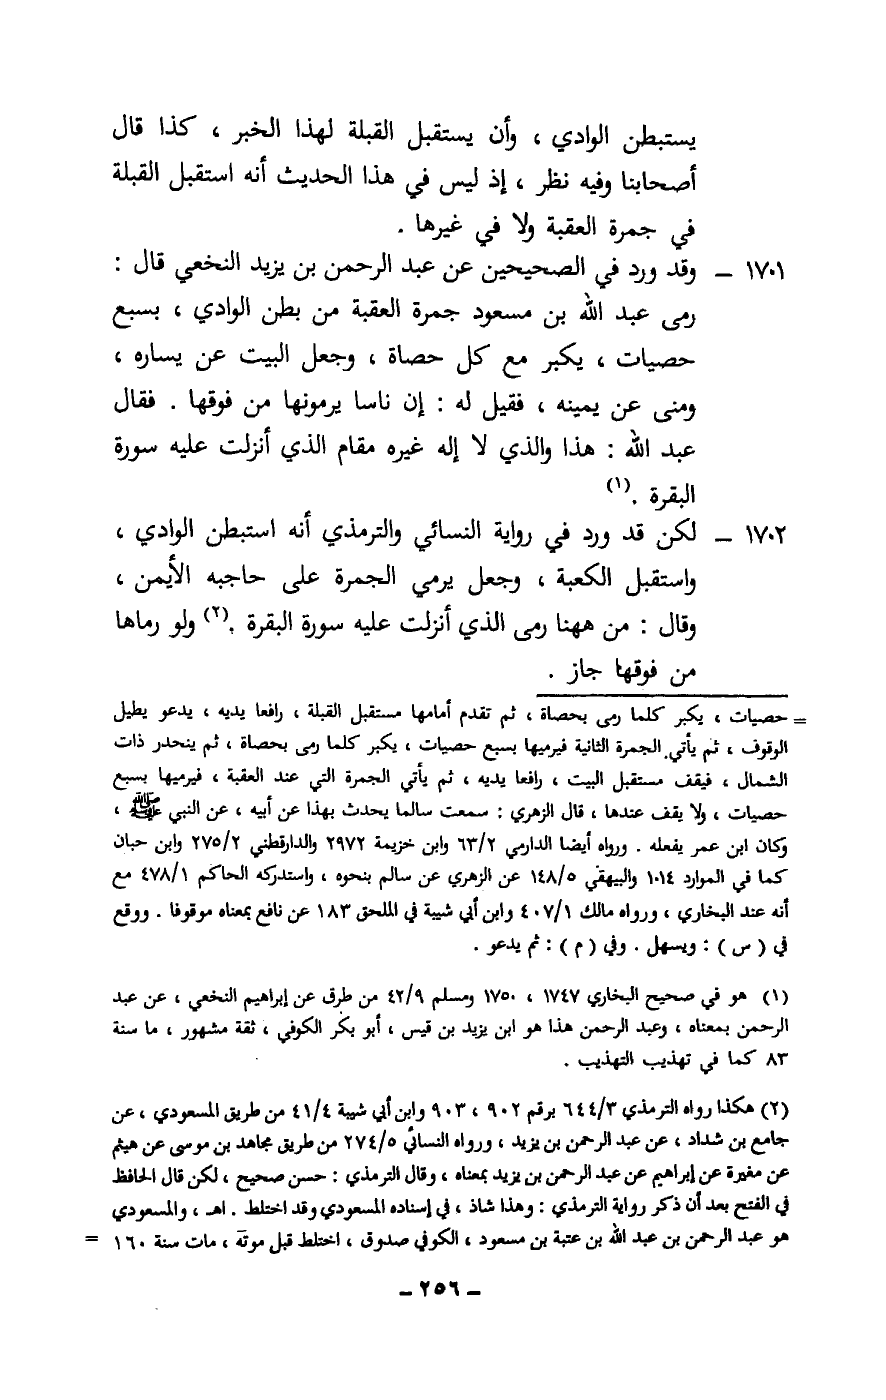 يستبطن الوادي ، وأن يستقبل القبلة لهذا الخبر ، كذا قال
أصحابنا وفيه نظر ، إذ ليس في هذا الحديث أنه استقبل القبلة
في جمرة العقبة ولا في غيرها .
١٧٠١ – وقد ورد في الصحيحين عن عبد الرحمن بن يزيد النخعي قال :
رمى عبد الله بن مسعود جمرة العقبة من بطن الوادي ، بسبع
حصيات ، يكبر مع كل حصاة ، وجعل البيت عن يساره ،
ومنى عن يمينه ، فقيل له : إن ناسا يرمونها من فوقها . فقال
عبد الله : هذا والذي لا إله غيره مقام الذي أنزلت عليه سورة
البقرة .(١)
١٧٠٢ – لكن قد ورد في رواية النسائي والترمذي أنه استبطن الوادي ،
واستقبل الكعبة ، وجعل يرمي الجمرة على حاجبه الأيمن ،
وقال : من ههنا رمى الذي أنزلت عليه سورة البقرة .(٢) ولو رماها
من فوقها جاز .
= حصيات ، يكبر كلما رمى بحصاة ، ثم تقدم أمامها مستقبل القبلة ، رافعا يديه ، يدعو يطيل
الوقوف ، ثم يأتي الجمرة الثانية فيرميها بسبع حصيات ، يكبر كلما رمى بحصاة ، ثم ينحدر ذات
الشمال ، فيقف مستقبل البيت ، رافعا يديه ، ثم يأتي الجمرة التي عند العقبة ، فيرميها بسبع
حصيات ، ولا يقف عندها ، قال الزهري : سمعت سالما يحدث بهذا عن أبيه ، عن النبي ﷺ ،
وكان ابن عمر يفعله . ورواه أيضا الدارمي ٦٣/٢ وابن خزيمة ٢٩٧٢ والدارقطني ٢٧٥/٢ وابن حبان
كما في الموارد ١٠١٤ والبيهقي ١٤٨/٥ عن الزهري عن سالم بنحوه ، واستدركه الحاكم ٤٧٨/١ مع
أنه عند البخاري ، ورواه مالك ٤٠٧/١ وابن أبي شيبة في الملحق ١٨٣ عن نافع بمعناه موقوفا . ووقع
في ( س ) : ويسهل . وفي ( م ) : ثم يدعو .
(١) هو في صحيح البخاري ١٧٤٧ ، ١٧٥٠ ومسلم ٤٢/٩ من طرق عن إبراهيم النخعي ، عن عبد
الرحمن بمعناه ، وعبد الرحمن هذا هو ابن يزيد بن قيس ، أبو بكر الكوفي ، ثقة مشهور ، ما سنة
٨٣ كما في تهذيب التهذيب .
(٢) هكذا رواه الترمذي ٦٤٤/٣ برقم ٩٠٢ ، ٩٠٣ وابن أبي شيبة ٤١/٤ من طريق المسعودي ، عن
جامع بن شداد ، عن عبد الرحمن بن يزيد ، ورواه النسائي ٢٧٤/٥ من طريق مجاهد بن موسى عن هيثم
عن مغيرة عن إبراهيم عن عبد الرحمن بن يزيد بمعناه ، وقال الترمذي : حسن صحيح ، لكن قال الحافظ
في الفتح بعد أن ذكر رواية الترمذي : وهذا شاذ ، في إسناده المسعودي وقد اختلط . اهـ ، والمسعودي
هو عبد الرحمن بن عبد الله بن عتبة بن مسعود ، الكوفي صدوق ، اختلط قبل موته ، مات سنة ١٦٠ =
– ٢٥٦ –